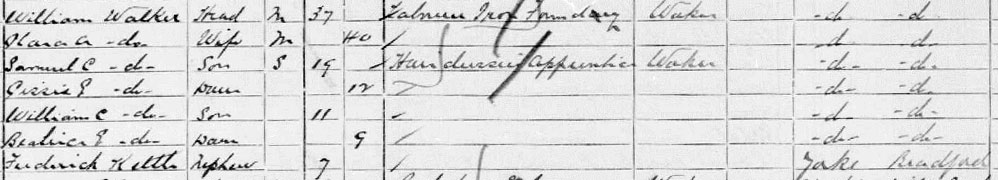 William Walker Head M 37 Labourer Iron Foundary Woker -do- -d-
Clara A -do- Wife M 40 -d- -d-
Samuel C -d- Son S 19 Hairdresser apprentice Woker -d- -d-
Cissie E -do- Daur 12 -d- -d-
William C -do- Son 11 -d- -d-
Beatrice E -do- Daur 9 -d- -d-
Frederick Nephew 7 Yorks Bradford